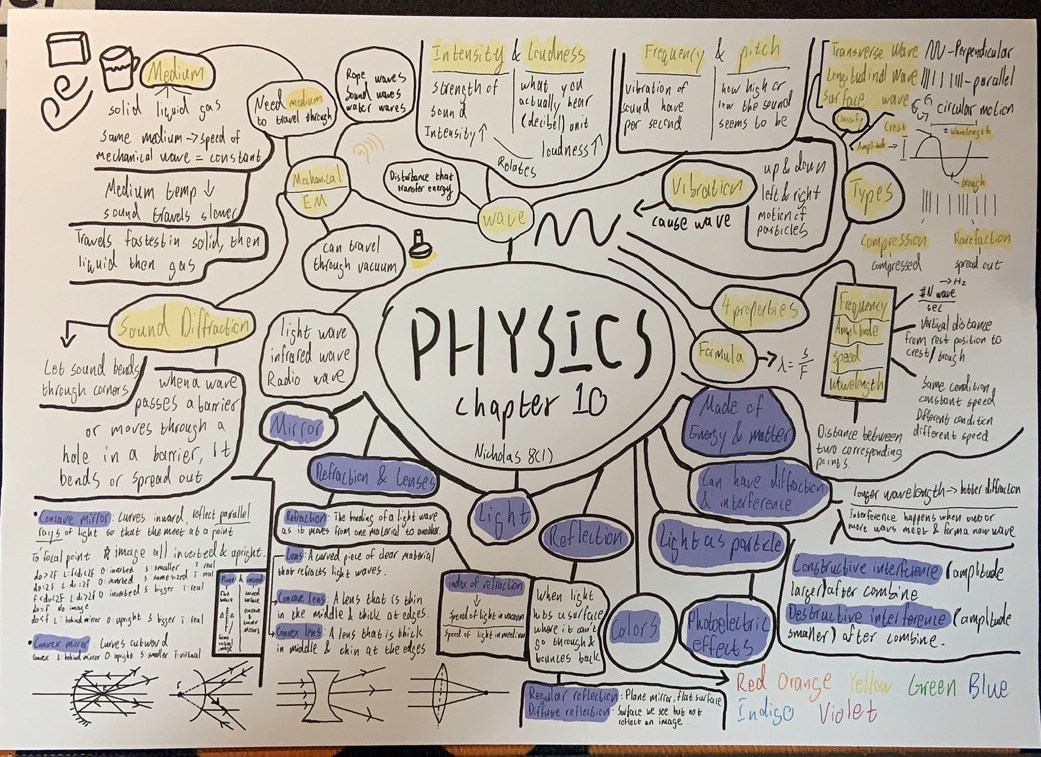 Medium
solid liquid gas
Same medium → speed of
mechanical wave = constant
Medium temp ↓
sound travels slower
Travels fastest in solid, then
liquid then gas
Need medium
to travel through
Rope waves
Sound waves
water waves
Mechanical
EM
can travel
through vacuum
light wave
infrared wave
Radio wave
Disturbance that
transfer energy
wave
Intensity & Loudness
strength of
sound
Intensity ↑
what you
actually hear
(decibel) unit
loudness ↑
Relates
Frequency & pitch
vibration of
sound have
per second
how high or
low the sound
seems to be
Vibration
cause wave
up & down
left & right
motion of
particles
Transverse wave - Perpendicular
Longitudinal wave - parallel
surface wave circular motion
Classify
Types
Crest
Amplitude
wavelength
trough
Compression
compressed
Rarefaction
spread out
4 properties
Formula
λ = s/F
Frequency
Amplitude
speed
wavelength
→ Hz
#N wave
sec
Vertical distance
from rest position to
crest/trough
Same condition
constant speed
Different condition
different speed
Distance between
two corresponding
points
Sound Diffraction
Let sound bends
through corners
when a wave
passes a barrier
or moves through a
hole in a barrier, It
bends or spread out
PHYSICS
chapter 10
Nicholas 8(1)
Mirror
Concave mirror: Curves inward, reflect parallel
rays of light so that the meet at a point
do>2F L:F<di<2F O:inverted s:smaller i:real
do=2F L:di=2F O:inverted s:same sized i:real
F<do<2F L:di>2F O:inverted s:bigger i:real
do=F no image
do<F L:behind mirror O:upright s:bigger
Convex mirror: Curves outward
convex L:behind mirror O:upright s:smaller i:virtual
Refraction & Lenses
Refraction: The bending of a light wave
as it moves from one material to another.
Lens: A curved piece of clear material
that refracts light waves.
Concave lens: A lens that is thin
in the middle & thick at edges.
Convex lens: A lens that is thick
in middle & thin at the edges
Index of refraction
Speed of light in vacuum
Speed of light in medium
Light
Reflection
When light
hits a surface
where it can't
go through &
bounces back
Regular reflection: Plane mirror, flat surface
Diffuse reflection: Surface we see but not
reflect an image
Colors
Red Orange Yellow Green Blue
Indigo Violet
Photoelectric
effects
Light as particle
Made of
Energy & matter
Can have diffraction
& interference
longer wavelength → better diffraction
Interference happens when two or
more waves meet & form a new wave
Constructive interference (amplitude
larger) after combine
Destructive interference (amplitude
smaller) after combine.